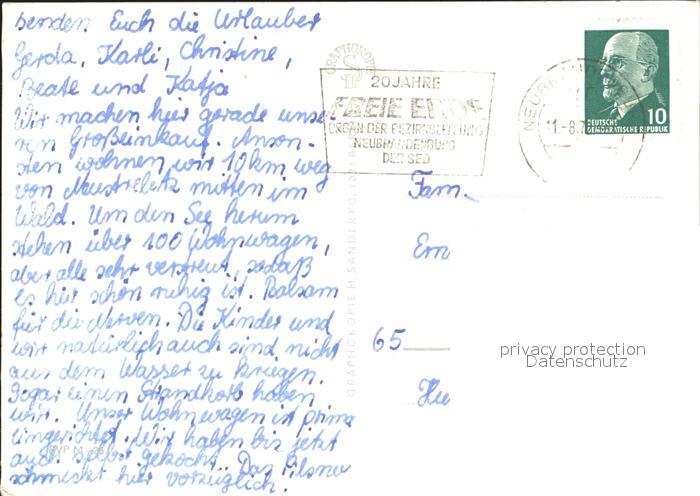 senden Euch die Urlauber
Gerda, Karli, Christine,
Beate und Katja
Wir machen hier gerade unse-
ren Großeinkauf. Anson-
sten wohnen wir 10 km weg
von Neustrelitz mitten im
Wald. Um den See herum
stehen über 100 Wohnwagen,
aber alle sehr verstreut, sodaß
es hier schön ruhig ist. Balsam
für die Nerven. Die Kinder und
wir natürlich auch sind nicht
aus dem Wasser zu kriegen.
Sogar einen Strandkorb haben
wir. Unser Wohnwagen ist prima
eingerichtet. Wir haben bis jetzt
auch selbst gekocht. Das Pilsner
schmeckt hier vorzüglich.
GRAPHOKOPIE
20 JAHRE
FREIE ERDE
ORGAN DER BEZIRKSLEITUNG
NEUBRANDENBURG
DER SED
11.-8.7
10
DEUTSCHE
DEMOKRATISCHE REPUBLIK
GRAPHOKOPIE H. SANDER KG,
Fam.
Ern
65
privacy protection
Datenschutz